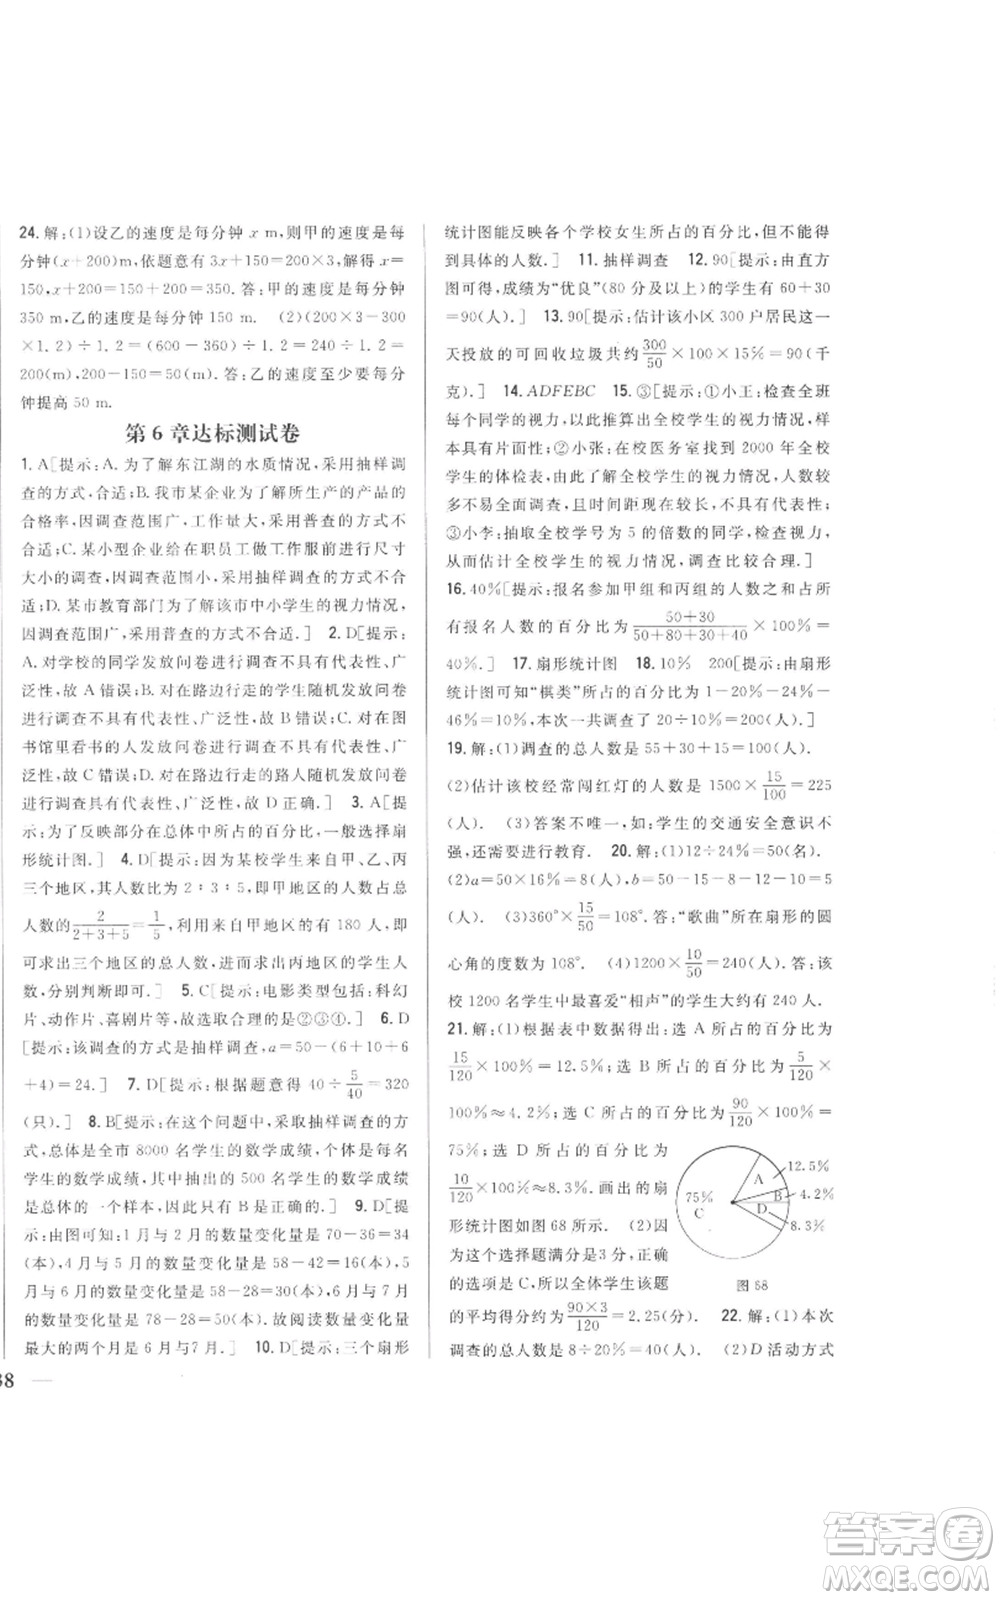 24. 解:(1)设乙的速度是每分钟 x m,则甲的速度是每
分钟(x+200)m,依题意有 3x+150=200×3,解得 x=
150,x+200=150+200=350. 答:甲的速度是每分钟
350 m,乙的速度是每分钟 150 m. (2)(200×3-300
×1.2)÷1.2=(600-360)÷1.2=240÷1.2=
200(m),200-150=50(m). 答:乙的速度至少要每分
钟提高 50 m.
第 6 章达标测试卷
1. A[提示:A. 为了解东江湖的水质情况,采用抽样调
查的方式,合适;B. 我市某企业为了解所生产的产品的
合格率,因调查范围广,工作量大,采用普查的方式不
合适;C. 某小型企业给在职员工做工作服前进行尺寸
大小的调查,因调查范围小,采用抽样调查的方式不合
适;D. 某市教育部门为了解该市中小学生的视力情况,
因调查范围广,采用普查的方式不合适.] 2. D[提示:
A. 对学校的同学发放问卷进行调查不具有代表性、广
泛性,故 A 错误;B. 对在路边行走的学生随机发放问卷
进行调查不具有代表性、广泛性,故 B 错误;C. 对在图
书馆里看书的人发放问卷进行调查不具有代表性、广
泛性,故 C 错误;D. 对在路边行走的路人随机发放问卷
进行调查具有代表性、广泛性,故 D 正确.] 3. A[提
示:为了反映部分在总体中所占的百分比,一般选择扇
形统计图.] 4. D[提示:因为某校学生来自甲、乙、丙
三个地区,其人数比为 2∶3∶5,即甲地区的人数占总
人数的 2/(2+3+5)=1/5,利用来自甲地区的有 180 人,即
可求出三个地区的总人数,进而求出丙地区的学生人
数,分别判断即可.] 5. C[提示:电影类型包括:科幻
片、动作片、喜剧片等,故选取合理的是②③④.] 6. D
[提示:该调查的方式是抽样调查,a=50-(6+10+6
+4)=24.] 7. D[提示:根据题意得 40÷5/40=320
(只).] 8. B[提示:在这个问题中,采取抽样调查的方
式,总体是全市 8000 名学生的数学成绩,个体是每名
学生的数学成绩,其中抽出的 500 名学生的数学成绩
是总体的一个样本,因此只有 B 是正确的.] 9. D[提
示:由图可知:1 月与 2 月的数量变化量是 70-36=34
(本),4 月与 5 月的数量变化量是 58-42=16(本),5
月与 6 月的数量变化量是 58-28=30(本),6 月与 7 月
的数量变化量是 78-28=50(本),故阅读数量变化量
最大的两个月是 6月与7月.] 10. D[提示:三个扇形
38
统计图能反映各个学校女生所占的百分比,但不能
得到具体的人数.] 11. 抽样调查 12. 90[提示:由直方
图可得,成绩为“优良”(80 分及以上)的学生有 60+30
=90(人).] 13. 90[提示:估计该小区 300 户居民这一
天投放的可回收垃圾共约 300/50×100×15%=90(千
克).] 14. ADFEBC 15. ③[提示:①小王:检查全班
每个同学的视力,以此推算出全校学生的视力情况,样
本具有片面性;②小张:在校医务室找到 2000 年全校
学生的体检表,由此了解全校学生的视力情况,人数较
多不易一全面调查,且时间相距较长,不具有代表性;
③小李:抽取全校学号为 5 的倍数的同学,检查视力,
从而估计全校学生的视力情况,调查比较合理.]
16. 40%[提示:报名参加甲组和丙组的人数之和占所
有报名人数的百分比为 (50+30)/(50+80+30+40)×100%=
40%.] 17. 扇形统计图 18. 10% 200[提示:由扇形
统计图可知“棋类”所占的百分比为 1-20%-24%-
46%=10%,本次一共调查了 20÷10%=200(人).]
19. 解:(1)调查的总人数是 55+30+15=100(人).
(2)估计该校经常闯红灯的人数是 1500×15/100=225
(人). (3)答案不唯一,如:学生的交通安全意识不
强,还需要进行教育. 20. 解:(1)12÷24%=50(名).
(2)a=50×16%=8(人),b=50-15-8-12-10=5
(人). (3)360°×15/50=108°. 答:“歌曲”所在扇形的圆
心角的度数为 108°. (4)1200×10/50=240(人). 答:该
校 1200 名学生中最喜爱“相声”的学生大约有 240 人.
21. 解:(1)根据表中数据得出:选 A 所占的百分比为
15/120×100%=12.5%;选 B 所占的百分比为 5/120×
100%≈4.2%;选 C 所占的百分比为 90/120×100%=
75%;选 D 所占的百分比为
10/120×100%≈8.3%. 画出的扇
形统计图如图 68 所示. (2)因
为这个选择题满分是3 分,正确
的选项是 C,所以全体学生该题
的平均得分约为 (90×3)/120=2.25(分). 22. 解:(1)本次
调查的总人数是 8÷20%=40(人). (2)D 活动方式
A
B
D
75%
C
12.5%
4.2%
8.3%
图 68
答案圈
MXQE.COM